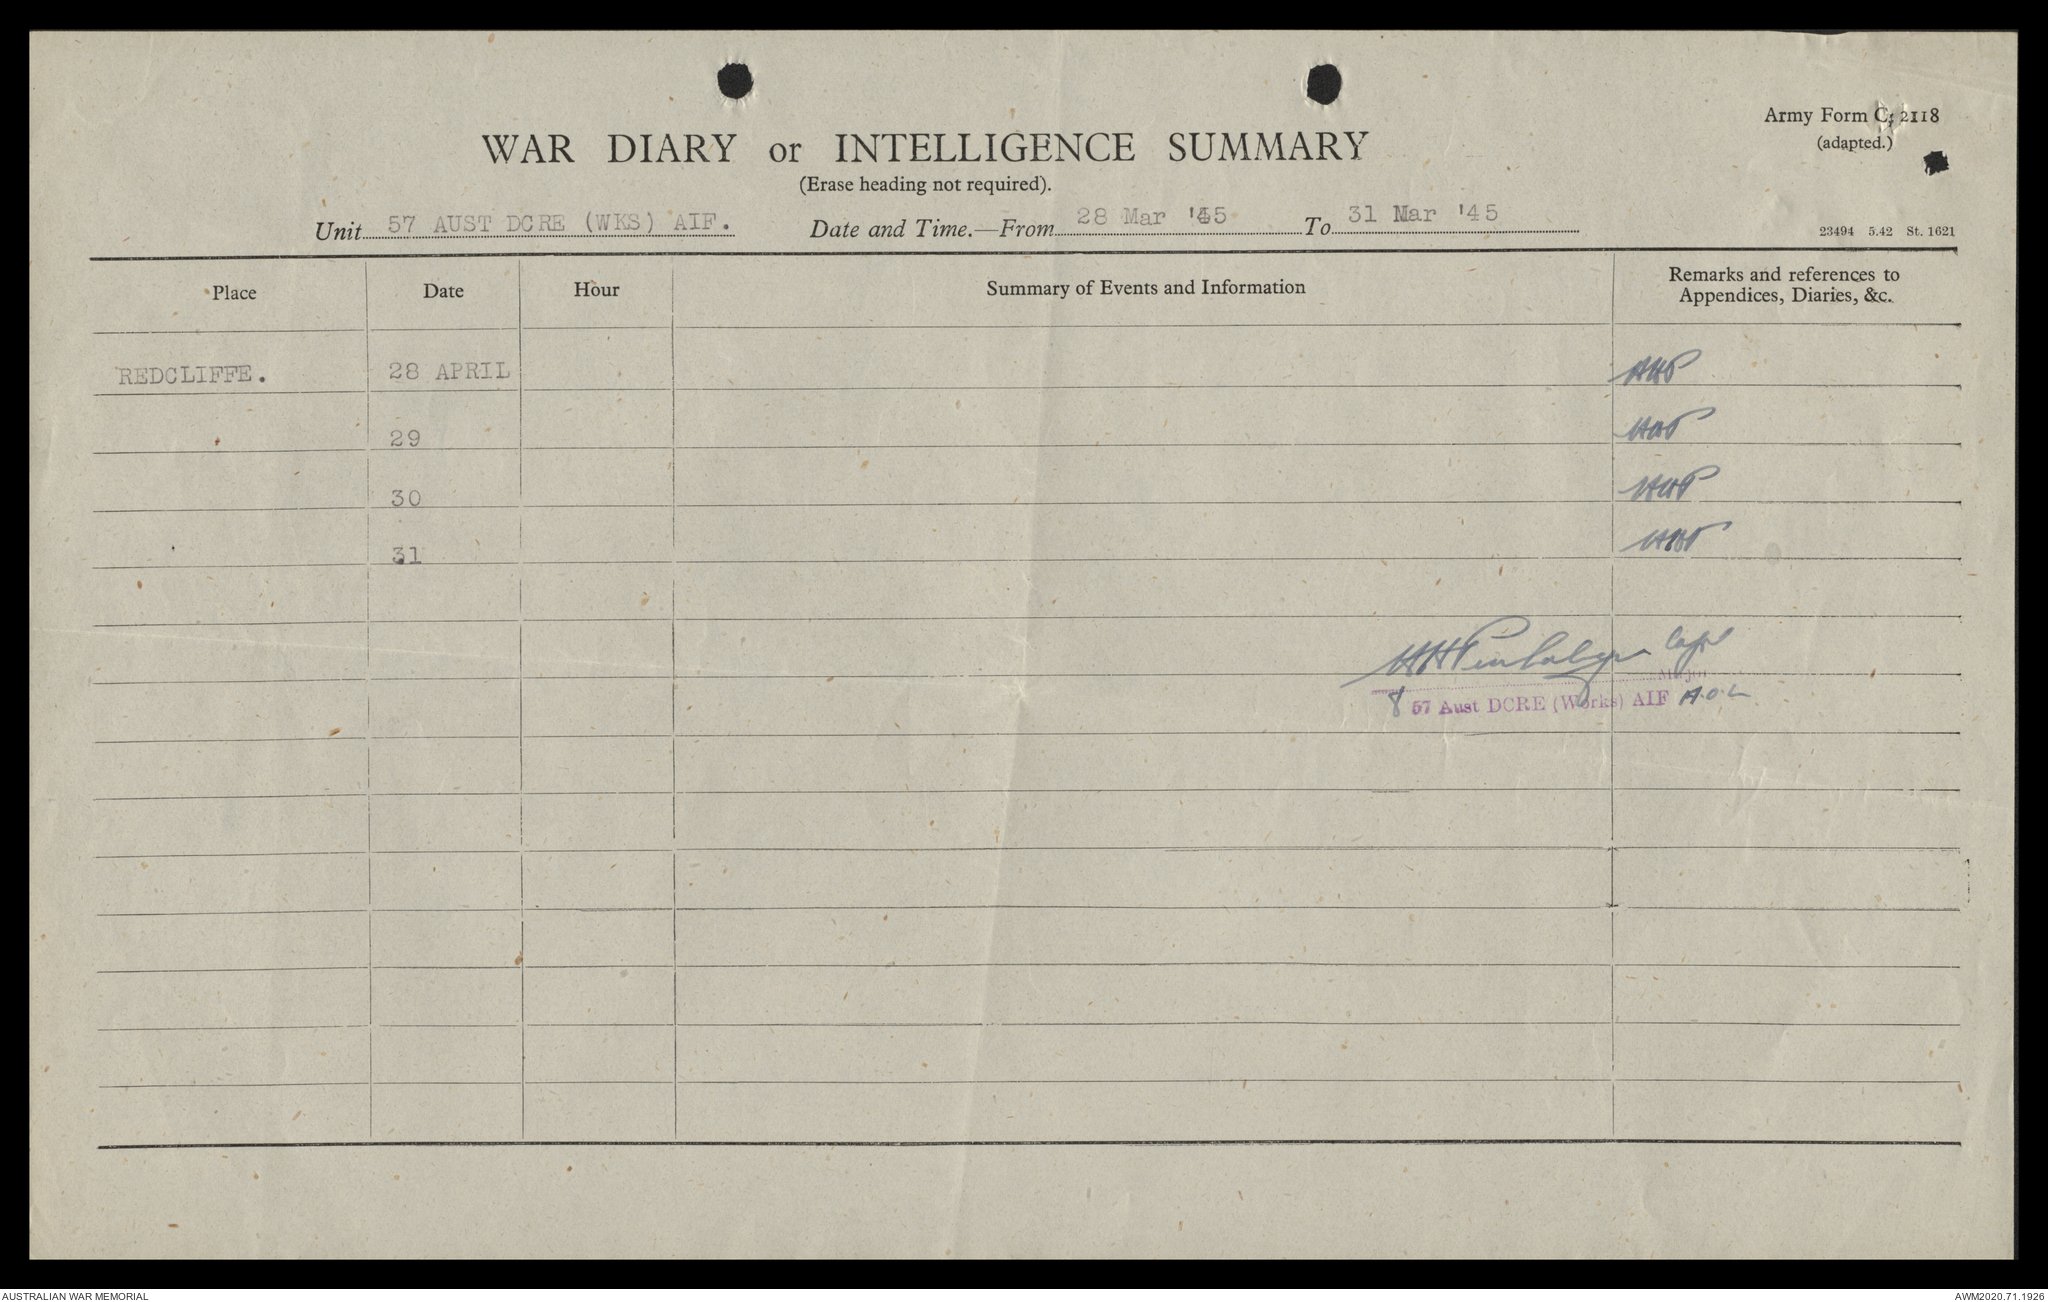 Army Form C. 2118
(adapted.)
WAR DIARY or INTELLIGENCE SUMMARY
(Erase heading not required).
Unit 57 AUST DCRE (WKS) AIF. Date and Time.—From 28 Mar '45 To 31 Mar '45
23494 5.42 St. 1621
Place Date Hour Summary of Events and Information Remarks and references to
Appendices, Diaries, &c.
REDCLIFFE. 28 APRIL
29
30
31
Capt
Major
57 Aust DCRE (Works) AIF
AUSTRALIAN WAR MEMORIAL AWM2020.71.1926